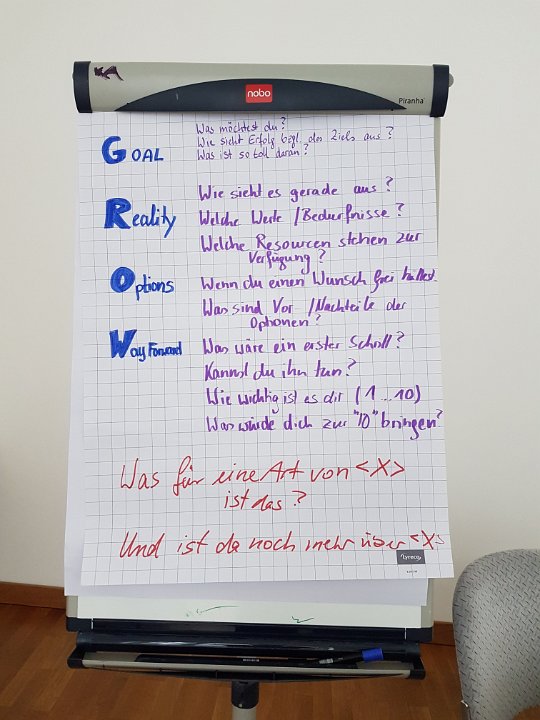 nobo
Piranha
GOAL
Was möchtest du?
Wie sieht Erfolg bzgl. des Ziels aus?
Was ist so toll daran?
Reality
Wie sieht es gerade aus?
Welche Werte / Bedürfnisse?
Welche Resourcen stehen zur
Verfügung?
Options
Wenn du einen Wunsch frei hättest
Was sind Vor / Nachteile der
Optionen?
Way Forward
Was wäre ein erster Schritt?
Kannst du ihn tun?
Wie wichtig ist es dir (1...10)
Was würde dich zur "10" bringen?
Was für eine Art von <X>
ist das?
Und ist da noch mehr über <X>
lyreco